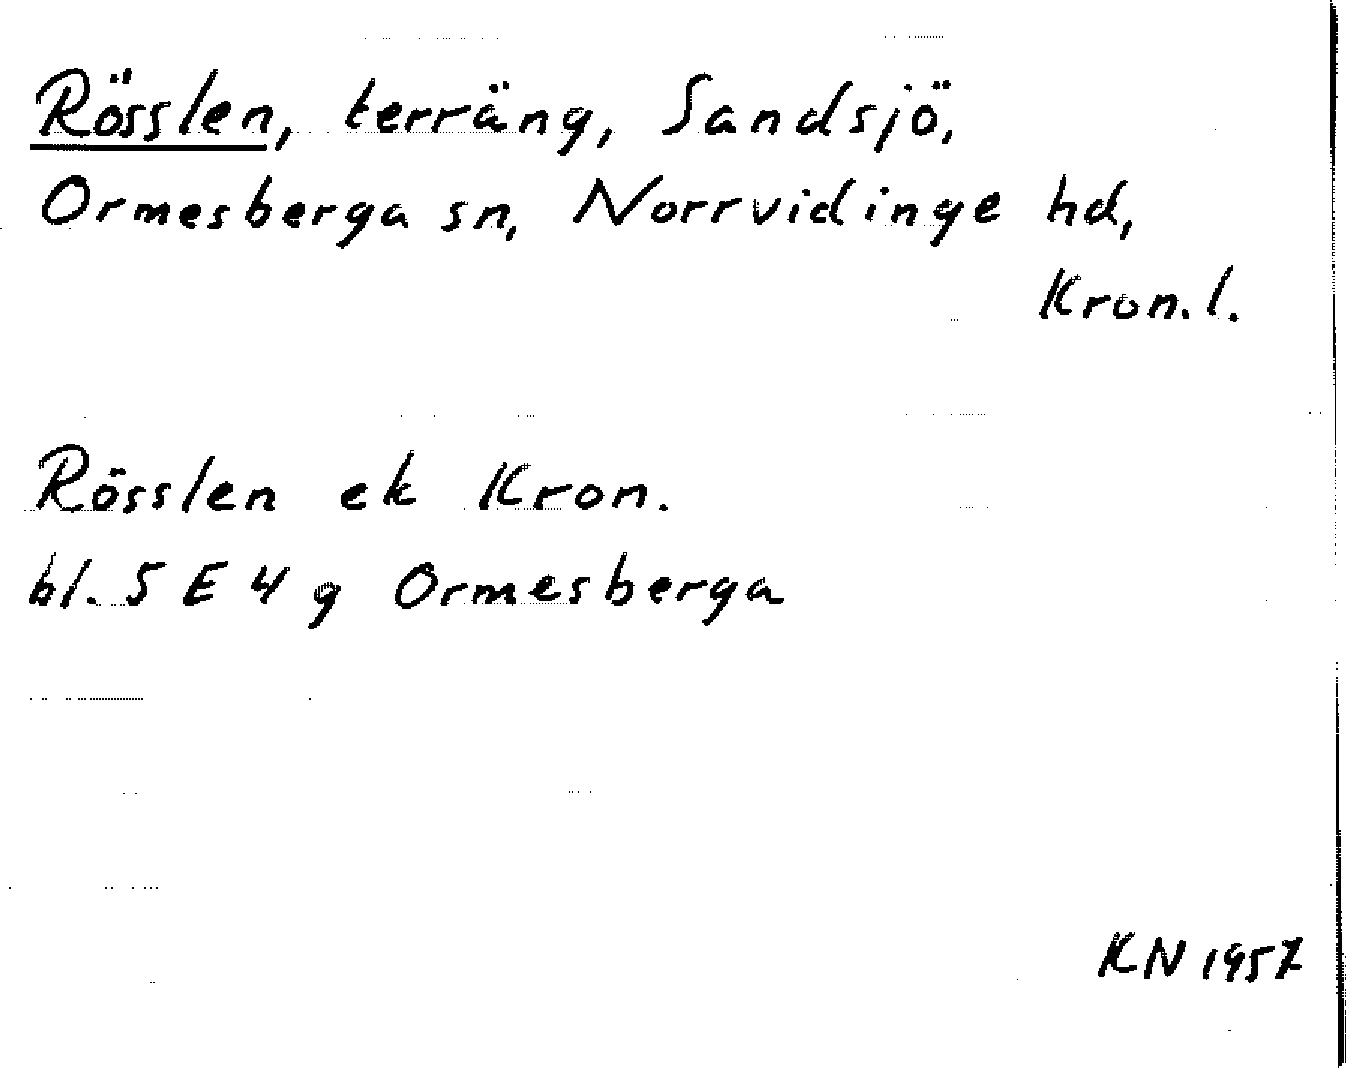 Rösslen, terräng, Sandsjö,
Ormesberga sn, Norrvidinge hd,
Kron.l.
Rösslen ek Kron.
bl. 5 E 4 g Ormesberga
KN 1957